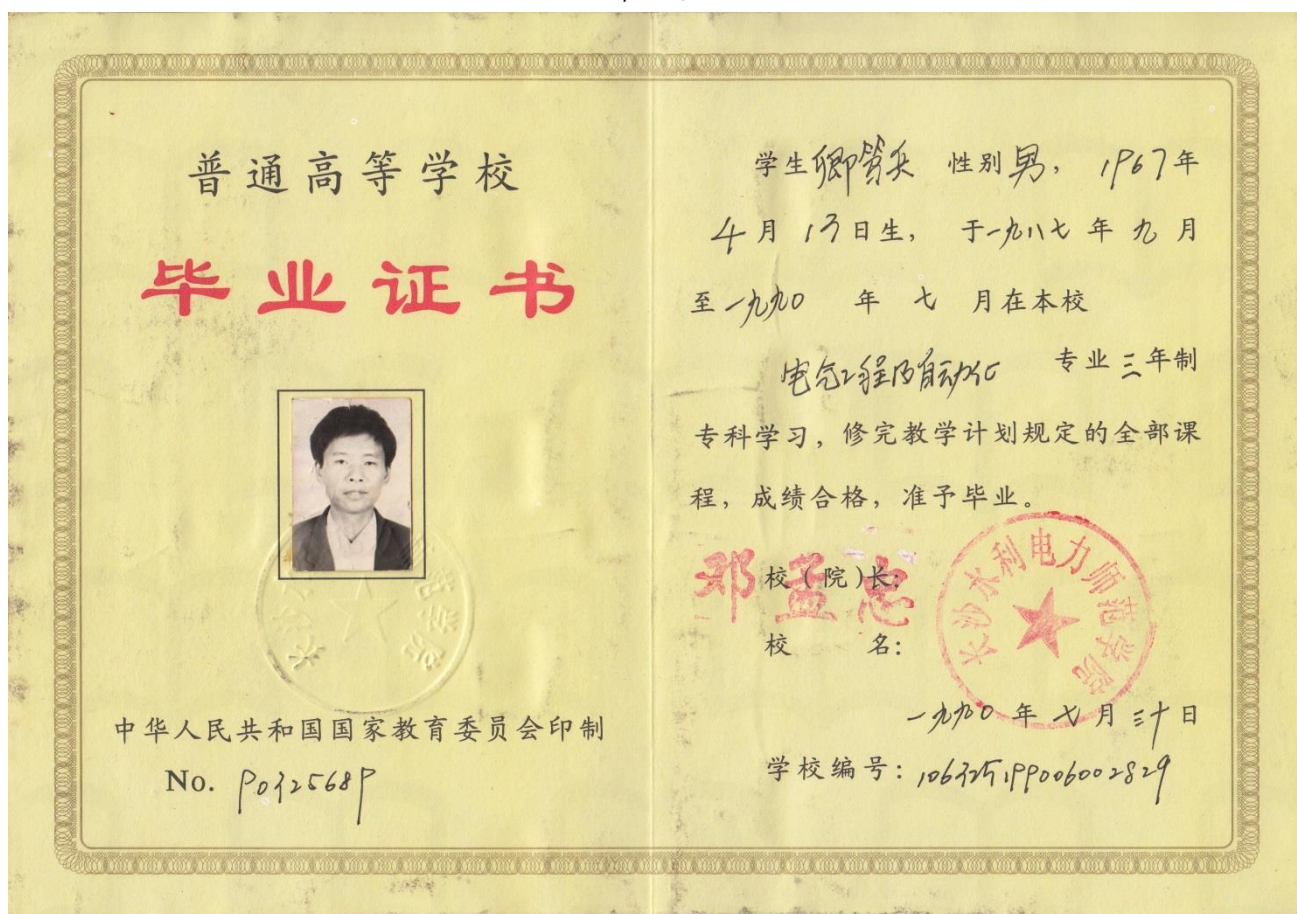 普通高等学校
毕业证书
中华人民共和国国家教育委员会印制
No. 90325689
学生卿 性别男, 1967年
4月13日生, 于一九八七年九月
至一九九0 年 七 月在本校
电气工程及自动化 专业三年制
专科学习,修完教学计划规定的全部课
程,成绩合格,准予毕业。
校(院)长: 邓孟忠
校 名:
长沙水利电力师范学院
一九九0年七月三十日
学校编号: